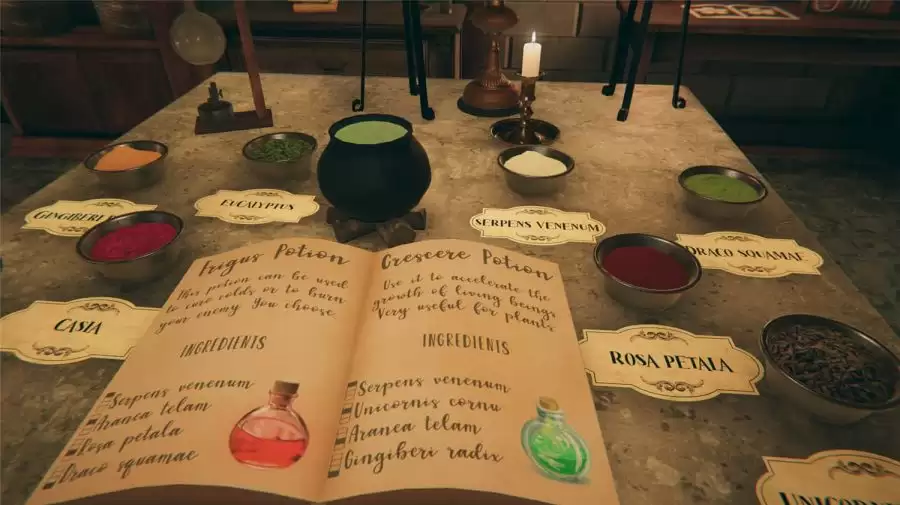 GINGIBERI
EUCALYPTUS
SERPENS VENENUM
DRACO SQUAMAE
CASIA
ROSA PETALA
UNICORN
Frigus Potion
This potion can be used
to cure colds or to burn
your enemy. You choose.
INGREDIENTS
Serpens venenum
Aranea telam
Rosa petala
Draco squamae
Crescere Potion
Use it to accelerate the
growth of living beings
Very useful for plants
INGREDIENTS
Serpens venenum
Unicornis cornu
Aranea telam
Gingiberi radix